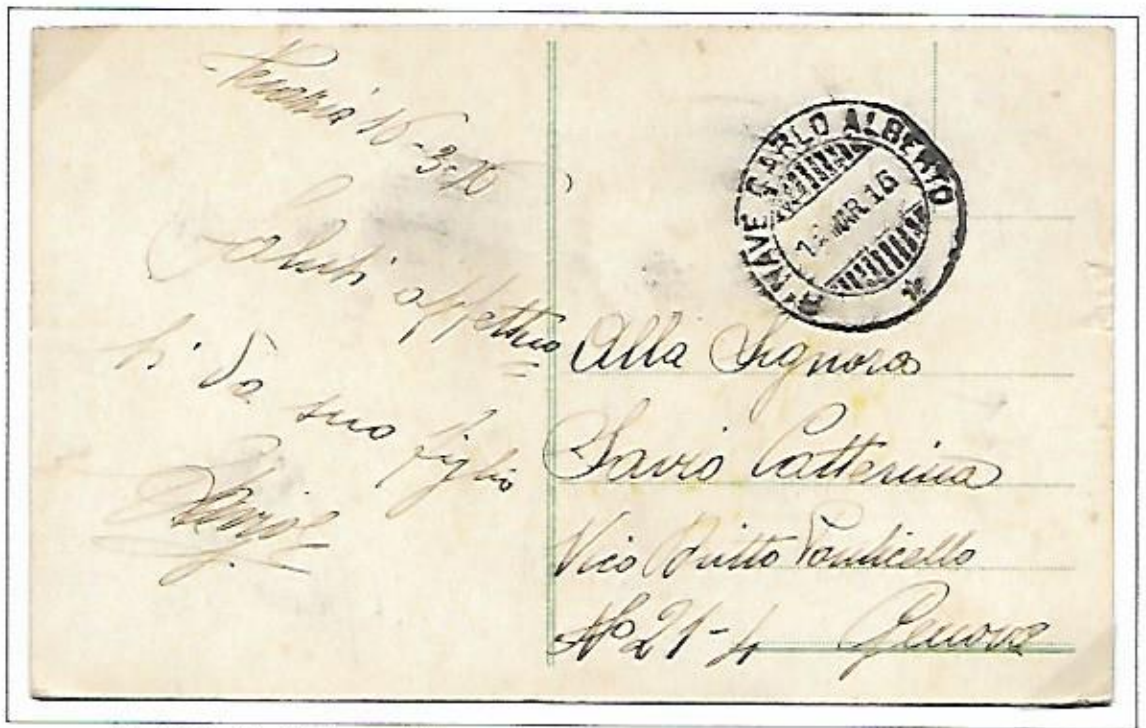 Venezia 16-3-16
Saluti affettuo
li da suo figlio
R. NAVE CARLO ALBERTO
MAR 16
Alla Signora
Savio Catterina
Vico Dritto Ponticello
No 21-4 Genova